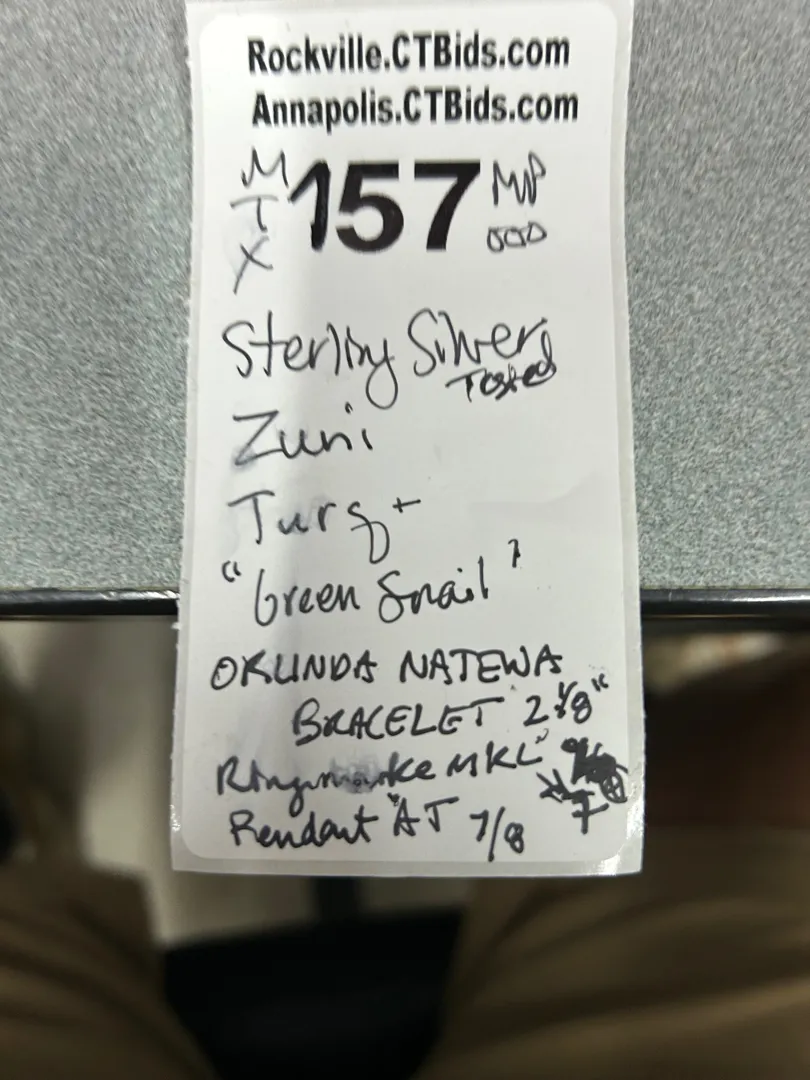 Rockville.CTBids.com
Annapolis.CTBids.com
M T X 157 MVP
000
Sterling Silver
Tested
Zuni
Turq +
"Green Snail"
OKUNDA NATEWA
BRACELET 2 1/8"
Ring marke MKL"
7
Pendant "AJ 7/8